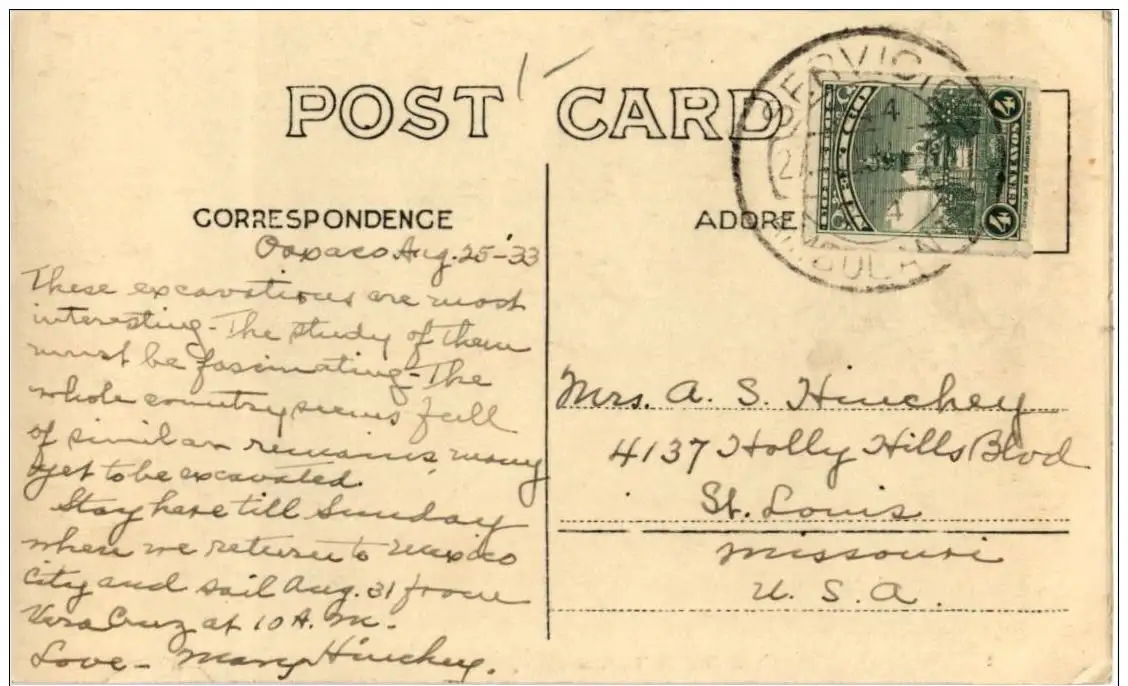 POST CARD
CORRESPONDENCE
Oaxaco Aug. 25-'33
These excavations are most
interesting - The study of them
must be fascinating - The
whole country seems full
of similar remains, many
yet to be excavated.
Stay here till Sunday
when we return to Mexico
City and sail Aug. 31 from
Vera Cruz at 10 A. M.
Love - Mary Hinchey.
ADDRE
SERVICIO
AMBULAN
4
4
CENTAVOS
Mrs. A. S. Hinchey
4137 Holly Hills Blvd
St. Louis
Missouri
U. S. A.